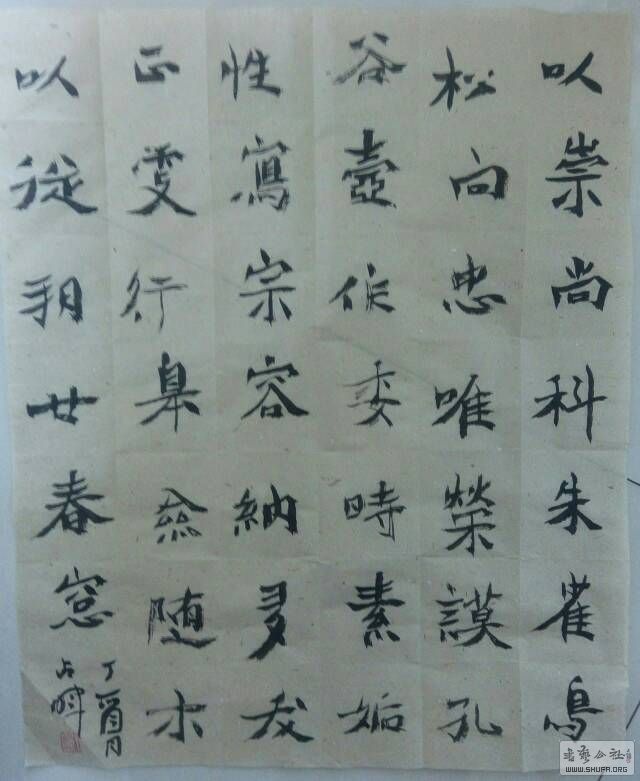 以崇尚科朱雀鳥
松向忠唯榮謨孔
谷壺作委時素姤
性寫宗容納多我
正雯行皋慈随木
以從羽廿春窓
丁酉月
占暉
书艺公社
WWW.SHUFA.ORG